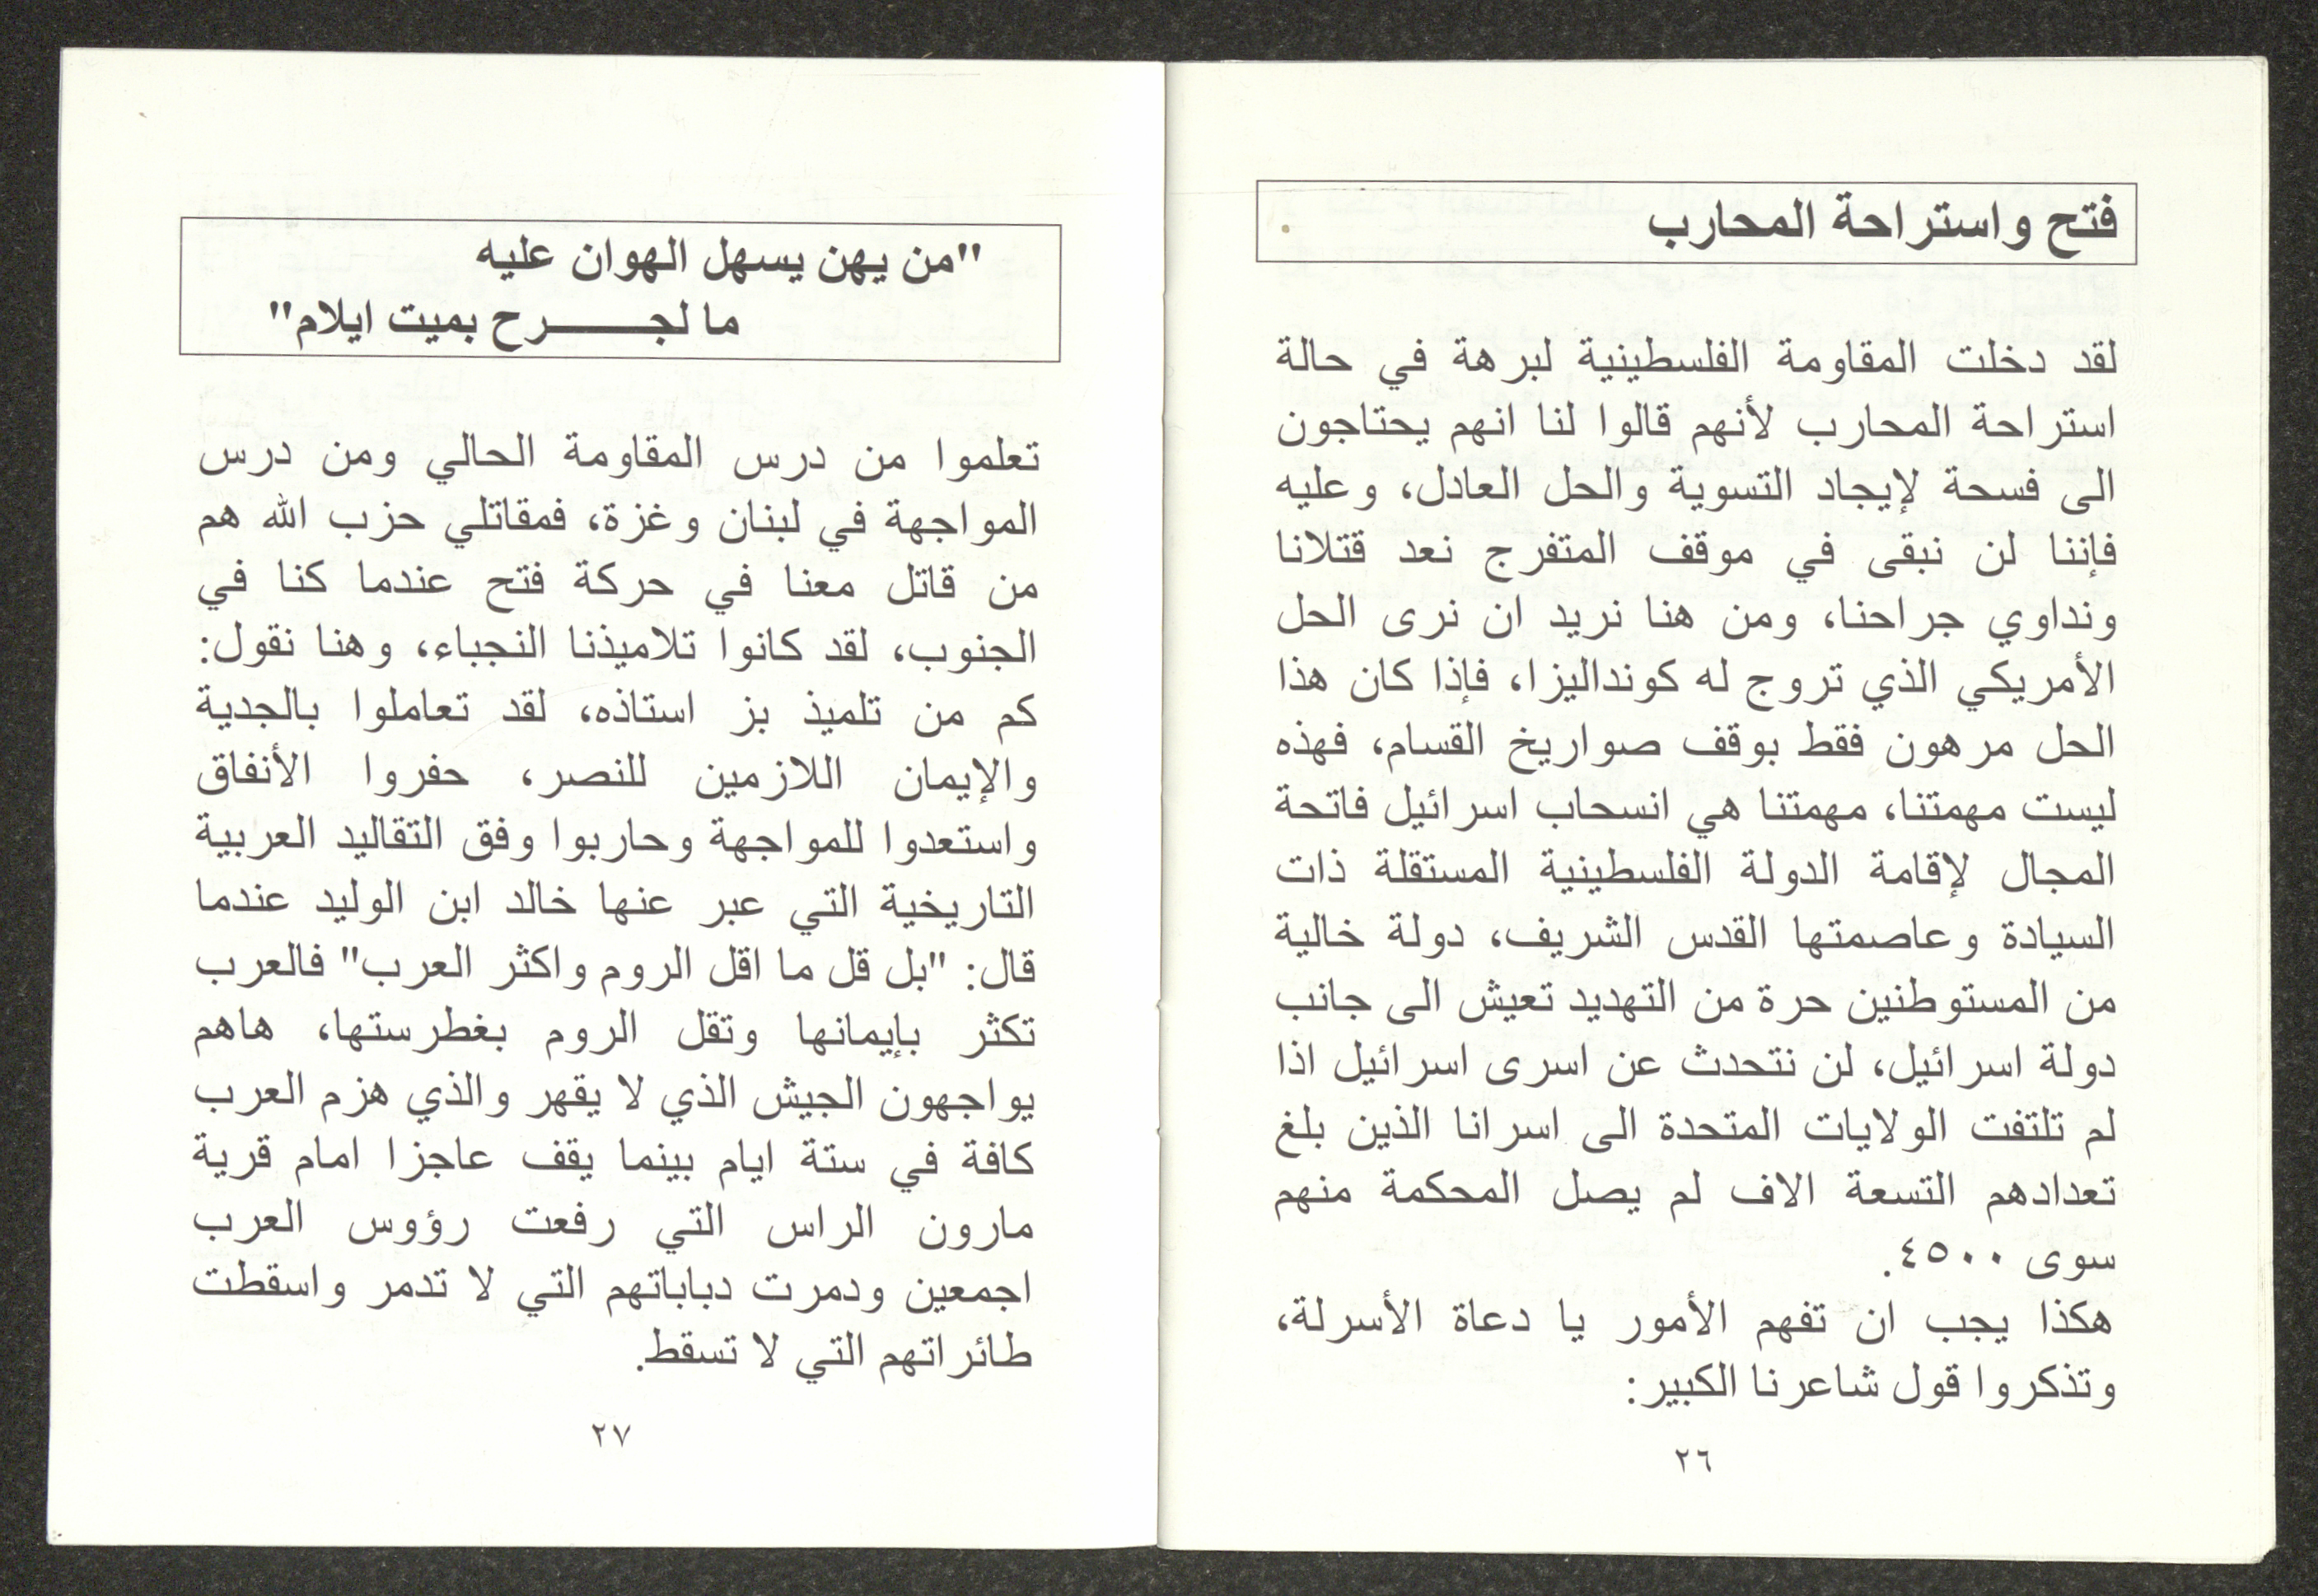 فتح واستراحة المحارب
لقد دخلت المقاومة الفلسطينية لبرهة في حالة
استراحة المحارب لأنهم قالوا لنا انهم يحتاجون
الى فسحة لإيجاد التسوية والحل العادل، وعليه
فإننا لن نبقى في موقف المتفرج نعد قتلانا
ونداوي جراحنا، ومن هنا نريد ان نرى الحل
الأمريكي الذي تروج له كونداليزا، فإذا كان هذا
الحل مرهون فقط بوقف صواريخ القسام، فهذه
ليست مهمتنا، مهمتنا هي انسحاب اسرائيل فاتحة
المجال لإقامة الدولة الفلسطينية المستقلة ذات
السيادة وعاصمتها القدس الشريف، دولة خالية
من المستوطنين حرة من التهديد تعيش الى جانب
دولة اسرائيل، لن نتحدث عن اسرى اسرائيل اذا
لم تلتفت الولايات المتحدة الى اسرانا الذين بلغ
تعدادهم التسعة الاف لم يصل المحكمة منهم
سوى ٤٥٠٠.
هكذا يجب ان تفهم الأمور يا دعاة الأسرلة،
وتذكروا قول شاعرنا الكبير:
٢٦
"من يهن يسهل الهوان عليه
ما لجـــــــرح بميت ايلام"
تعلموا من درس المقاومة الحالي ومن درس
المواجهة في لبنان وغزة، فمقاتلي حزب الله هم
من قاتل معنا في حركة فتح عندما كنا في
الجنوب، لقد كانوا تلاميذنا النجباء، وهنا نقول:
كم من تلميذ بز استاذه، لقد تعاملوا بالجدية
والإيمان اللازمين للنصر، حفروا الأنفاق
واستعدوا للمواجهة وحاربوا وفق التقاليد العربية
التاريخية التي عبر عنها خالد ابن الوليد عندما
قال: "بل قل ما اقل الروم واكثر العرب" فالعرب
تكثر بإيمانها وتقل الروم بغطرستها، هاهم
يواجهون الجيش الذي لا يقهر والذي هزم العرب
كافة في ستة ايام بينما يقف عاجزا امام قرية
مارون الراس التي رفعت رؤوس العرب
اجمعين ودمرت دباباتهم التي لا تدمر واسقطت
طائراتهم التي لا تسقط.
٢٧